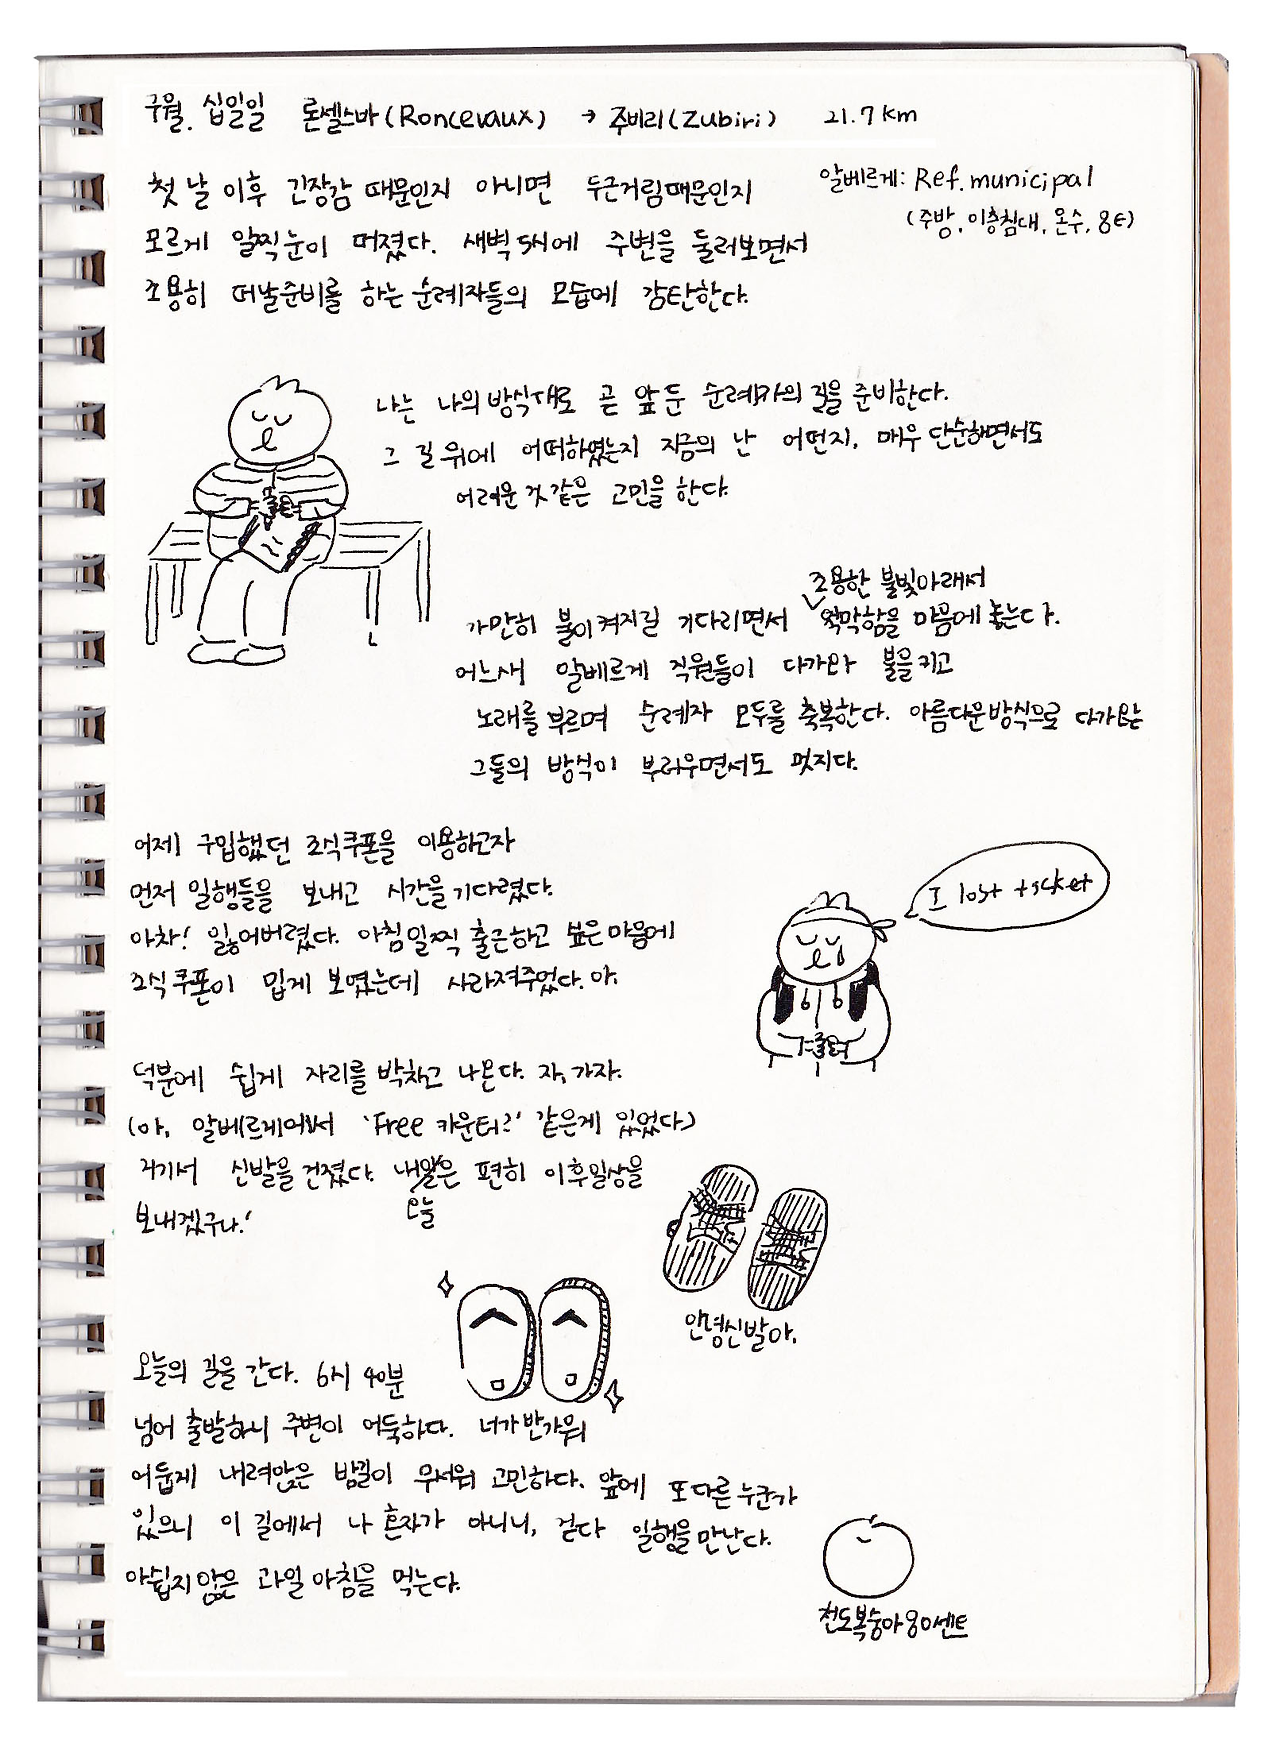 구월. 십일일 론셀스바(Roncevaux) → 주비리(Zubiri) 21.7km
알베르게: Ref. municipal
(주방, 이층침대, 온수, 8€)
첫 날 이후 긴장감 때문인지 아니면 두근거림때문인지
모르게 일찍 눈이 떠졌다. 새벽 5시에 주변을 둘러보면서
조용히 떠날준비를 하는 순례자들의 모습에 감탄한다.
나는 나의 방식대로 곧 앞 둔 순례자의 길을 준비한다.
그 길 위에 어떠하였는지 지금의 난 어떤지, 매우 단순하면서도
어려운 것 같은 고민을 한다.
조용한 불빛아래서
가만히 불이 켜지길 기다리면서 적막함을 마음에 놓는다.
어느새 알베르게 직원들이 다가와 불을 키고
노래를 부르며 순례자 모두를 축복한다. 아름다운방식으로 다가오는
그들의 방식이 부러우면서도 멋지다.
어제 구입했던 조식쿠폰을 이용하고자
먼저 일행들을 보내고 시간을 기다렸다.
아차! 잃어버렸다. 아침일찍 출근하고 싶은 마음에
조식쿠폰이 밉게 보였는데 사라져주었다. 아.
I lost ticket
덕분에 쉽게 자리를 박차고 나온다. 자, 가자.
(아, 알베르게에서 'Free 카운터?' 같은게 있었다)
거기서 신발을 건졌다. 은 편히 이후일상을
오늘
보내겠구나.'
안녕신발아.
오늘의 길을 간다. 6시 40분
넘어 출발하니 주변이 어둑하다. 너가 반가워
어둡게 내려앉은 밤길이 무서워 고민하다. 앞에 또 다른 누군가
있으니 이 길에서 나 혼자가 아니니, 걷다 일행을 만난다.
아쉽지않은 과일 아침을 먹는다.
천도복숭아 80센트